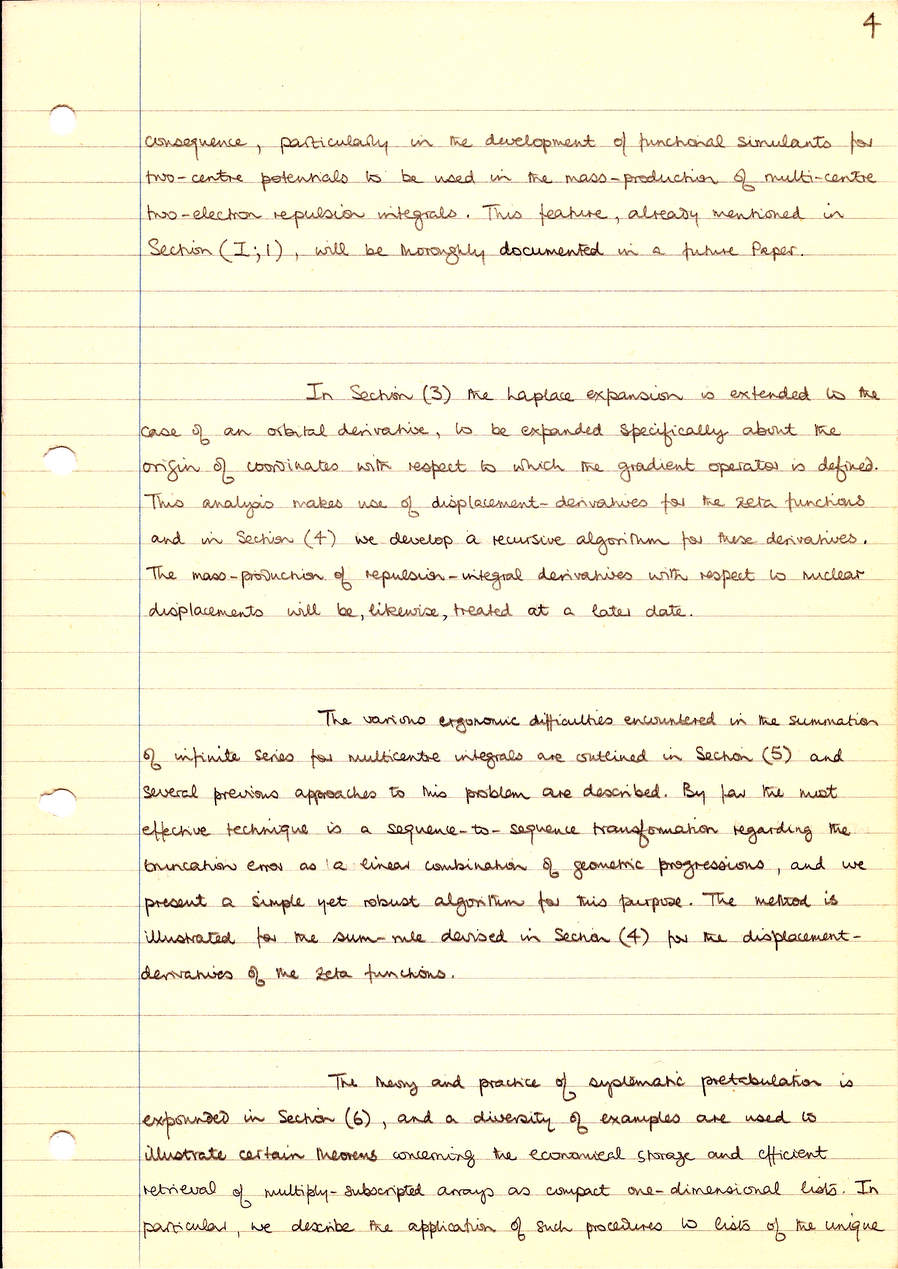 4
consequence, particularly in the development of functional simulants for
two-centre potentials to be used in the mass-production of multi-centre
two-electron repulsion integrals. This feature, already mentioned in
Section (I;1), will be thoroughly documented in a future Paper.
In Section (3) the Laplace expansion is extended to the
case of an orbital derivative, to be expanded specifically about the
origin of coordinates with respect to which the gradient operator is defined.
This analysis makes use of displacement-derivatives for the zeta functions
and in Section (4) we develop a recursive algorithm for these derivatives.
The mass-production of repulsion-integral derivatives with respect to nuclear
displacements will be, likewise, treated at a later date.
The various ergonomic difficulties encountered in the summation
of infinite series for multicentre integrals are outlined in Section (5) and
several previous approaches to this problem are described. By far the most
effective technique is a sequence-to-sequence transformation regarding the
truncation error as a linear combination of geometric progressions, and we
present a simple yet robust algorithm for this purpose. The method is
illustrated for the sum-rule devised in Section (4) for the displacement-
derivatives of the zeta functions.
The theory and practice of systematic pretabulation is
expounded in Section (6), and a diversity of examples are used to
illustrate certain theorems concerning the economical storage and efficient
retrieval of multiply-subscripted arrays as compact one-dimensional lists. In
particular, we describe the application of such procedures to lists of the unique